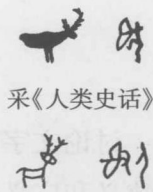 采《人类史话》